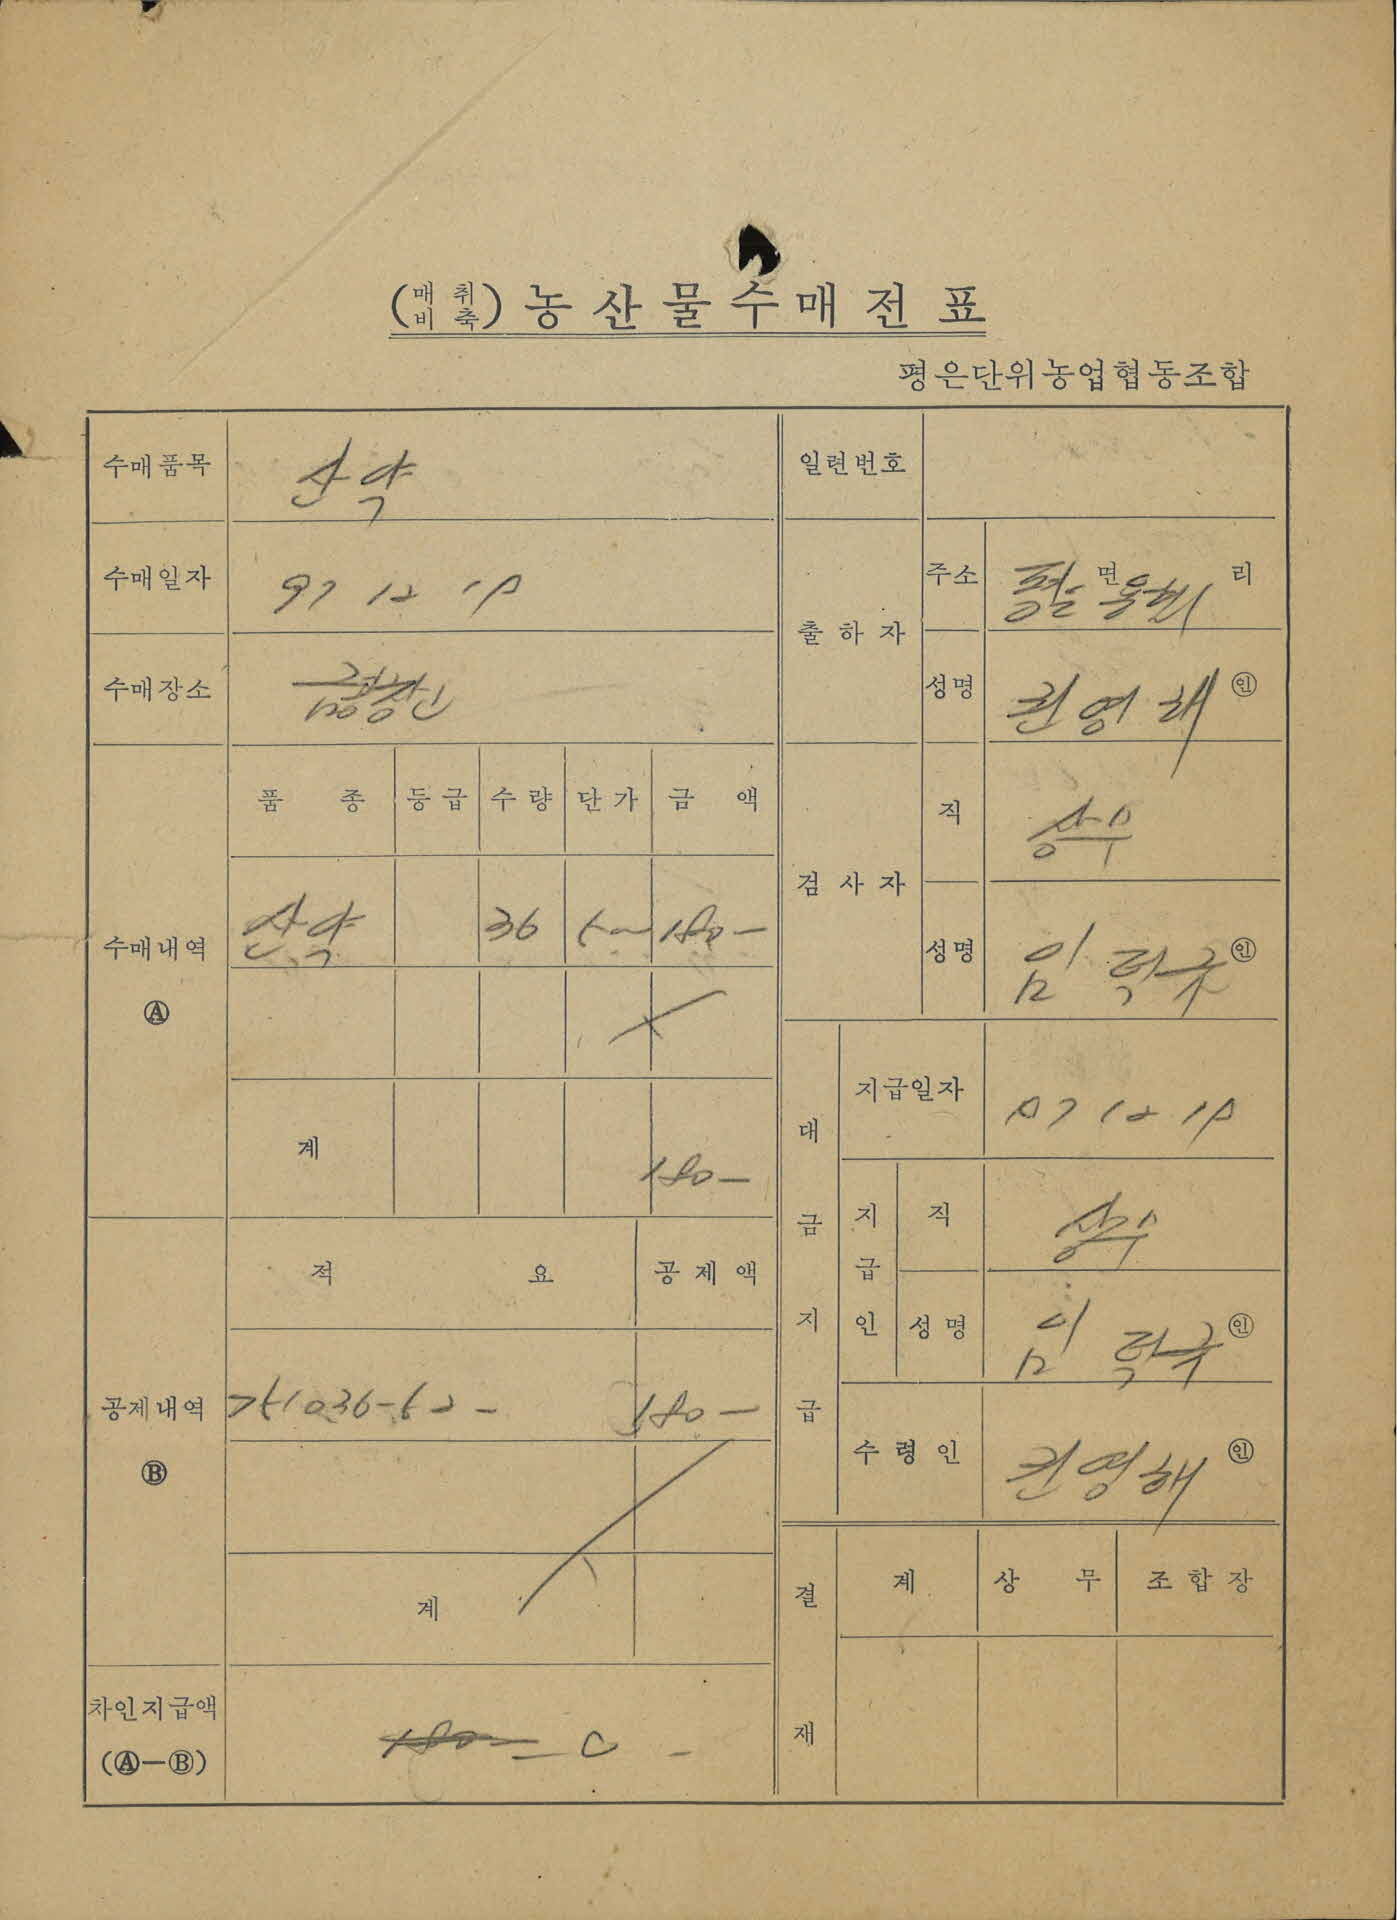 (매취비축) 농산물수매전표
평은단위농업협동조합
수매품목 산약
일련번호
수매일자 97 12 19
출하자 주소 평은면 용혈리
수매장소
성명 권영해 ㊞
수매내역 Ⓐ
품종 등급 수량 단가 금액
산약 36 5-- 180-
계 180-
검사자 직 상무
성명 임학규 ㊞
대금지급
지급일자 97 12 19
지급인 직 상무
성명 임학규 ㊞
수령인 권영해 ㊞
공제내역 Ⓑ
적요 공제액
180-
계
차인지급액
(Ⓐ-Ⓑ)
180- - 0 -
결재 계 상무 조합장